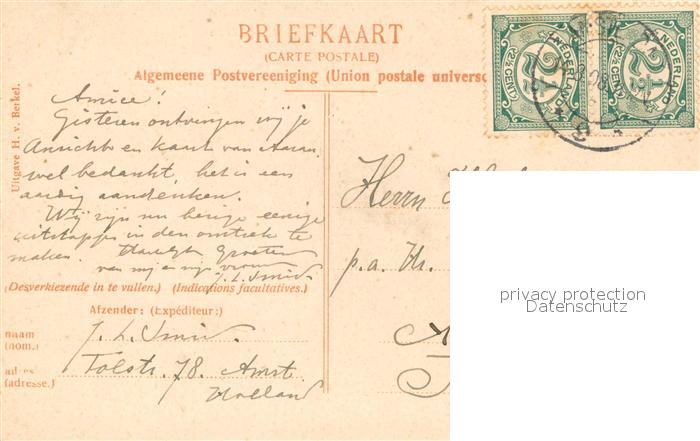 BRIEFKAART
(CARTE POSTALE)
Algemeene Postvereeniging (Union postale universe
NEDERLAND
2½ CENT
NEDERLAND
2½ CENT
Uitgave H. v. Berkel.
Amice!
Gisteren ontvingen wij je
Ansichts en kaart van Aarau,
wel bedankt, het is een
aardig aandenken.
Wij zijn nu bezig eenige
uitstapjes in den omtrek te
maken. Groeten
van mij en mijn vrouw
J. L. Smid
(Desverkiezende in te vullen.) (Indications facultatives.)
Afzender: (Expéditeur:)
naam
(nom.)
J. L. Smid.
adres
(adresse.)
Tolstr. 78. Amst.
Holland
Herrn
p.a. Hr.
privacy protection
Datenschutz